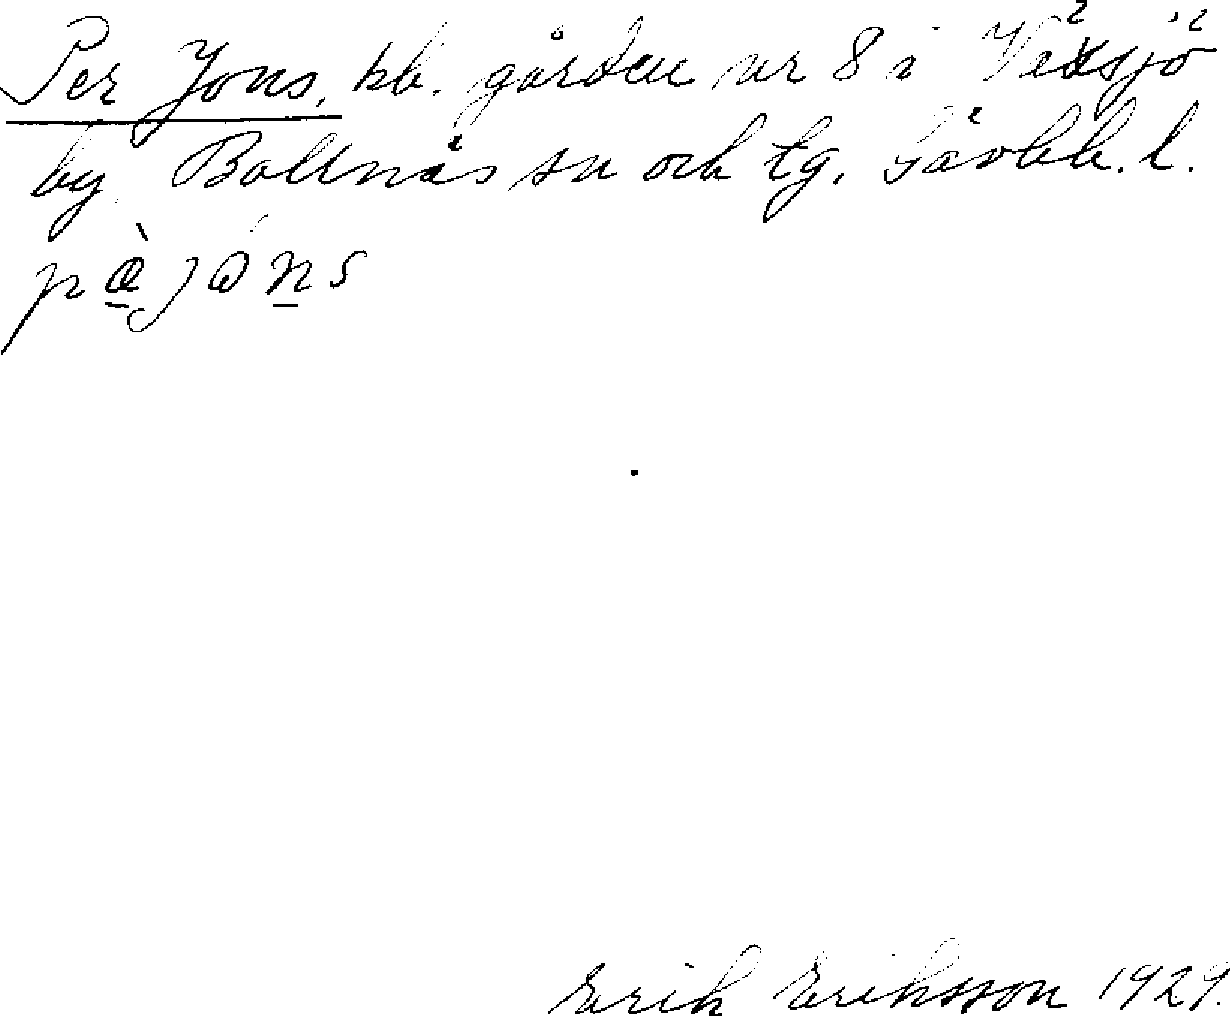 Per Jons, bb. gården nr 8 i Växsjö
by, Bollnäs sn och tg. Gävleb. l.
pæ̀jóns
Erik Eriksson 1929.